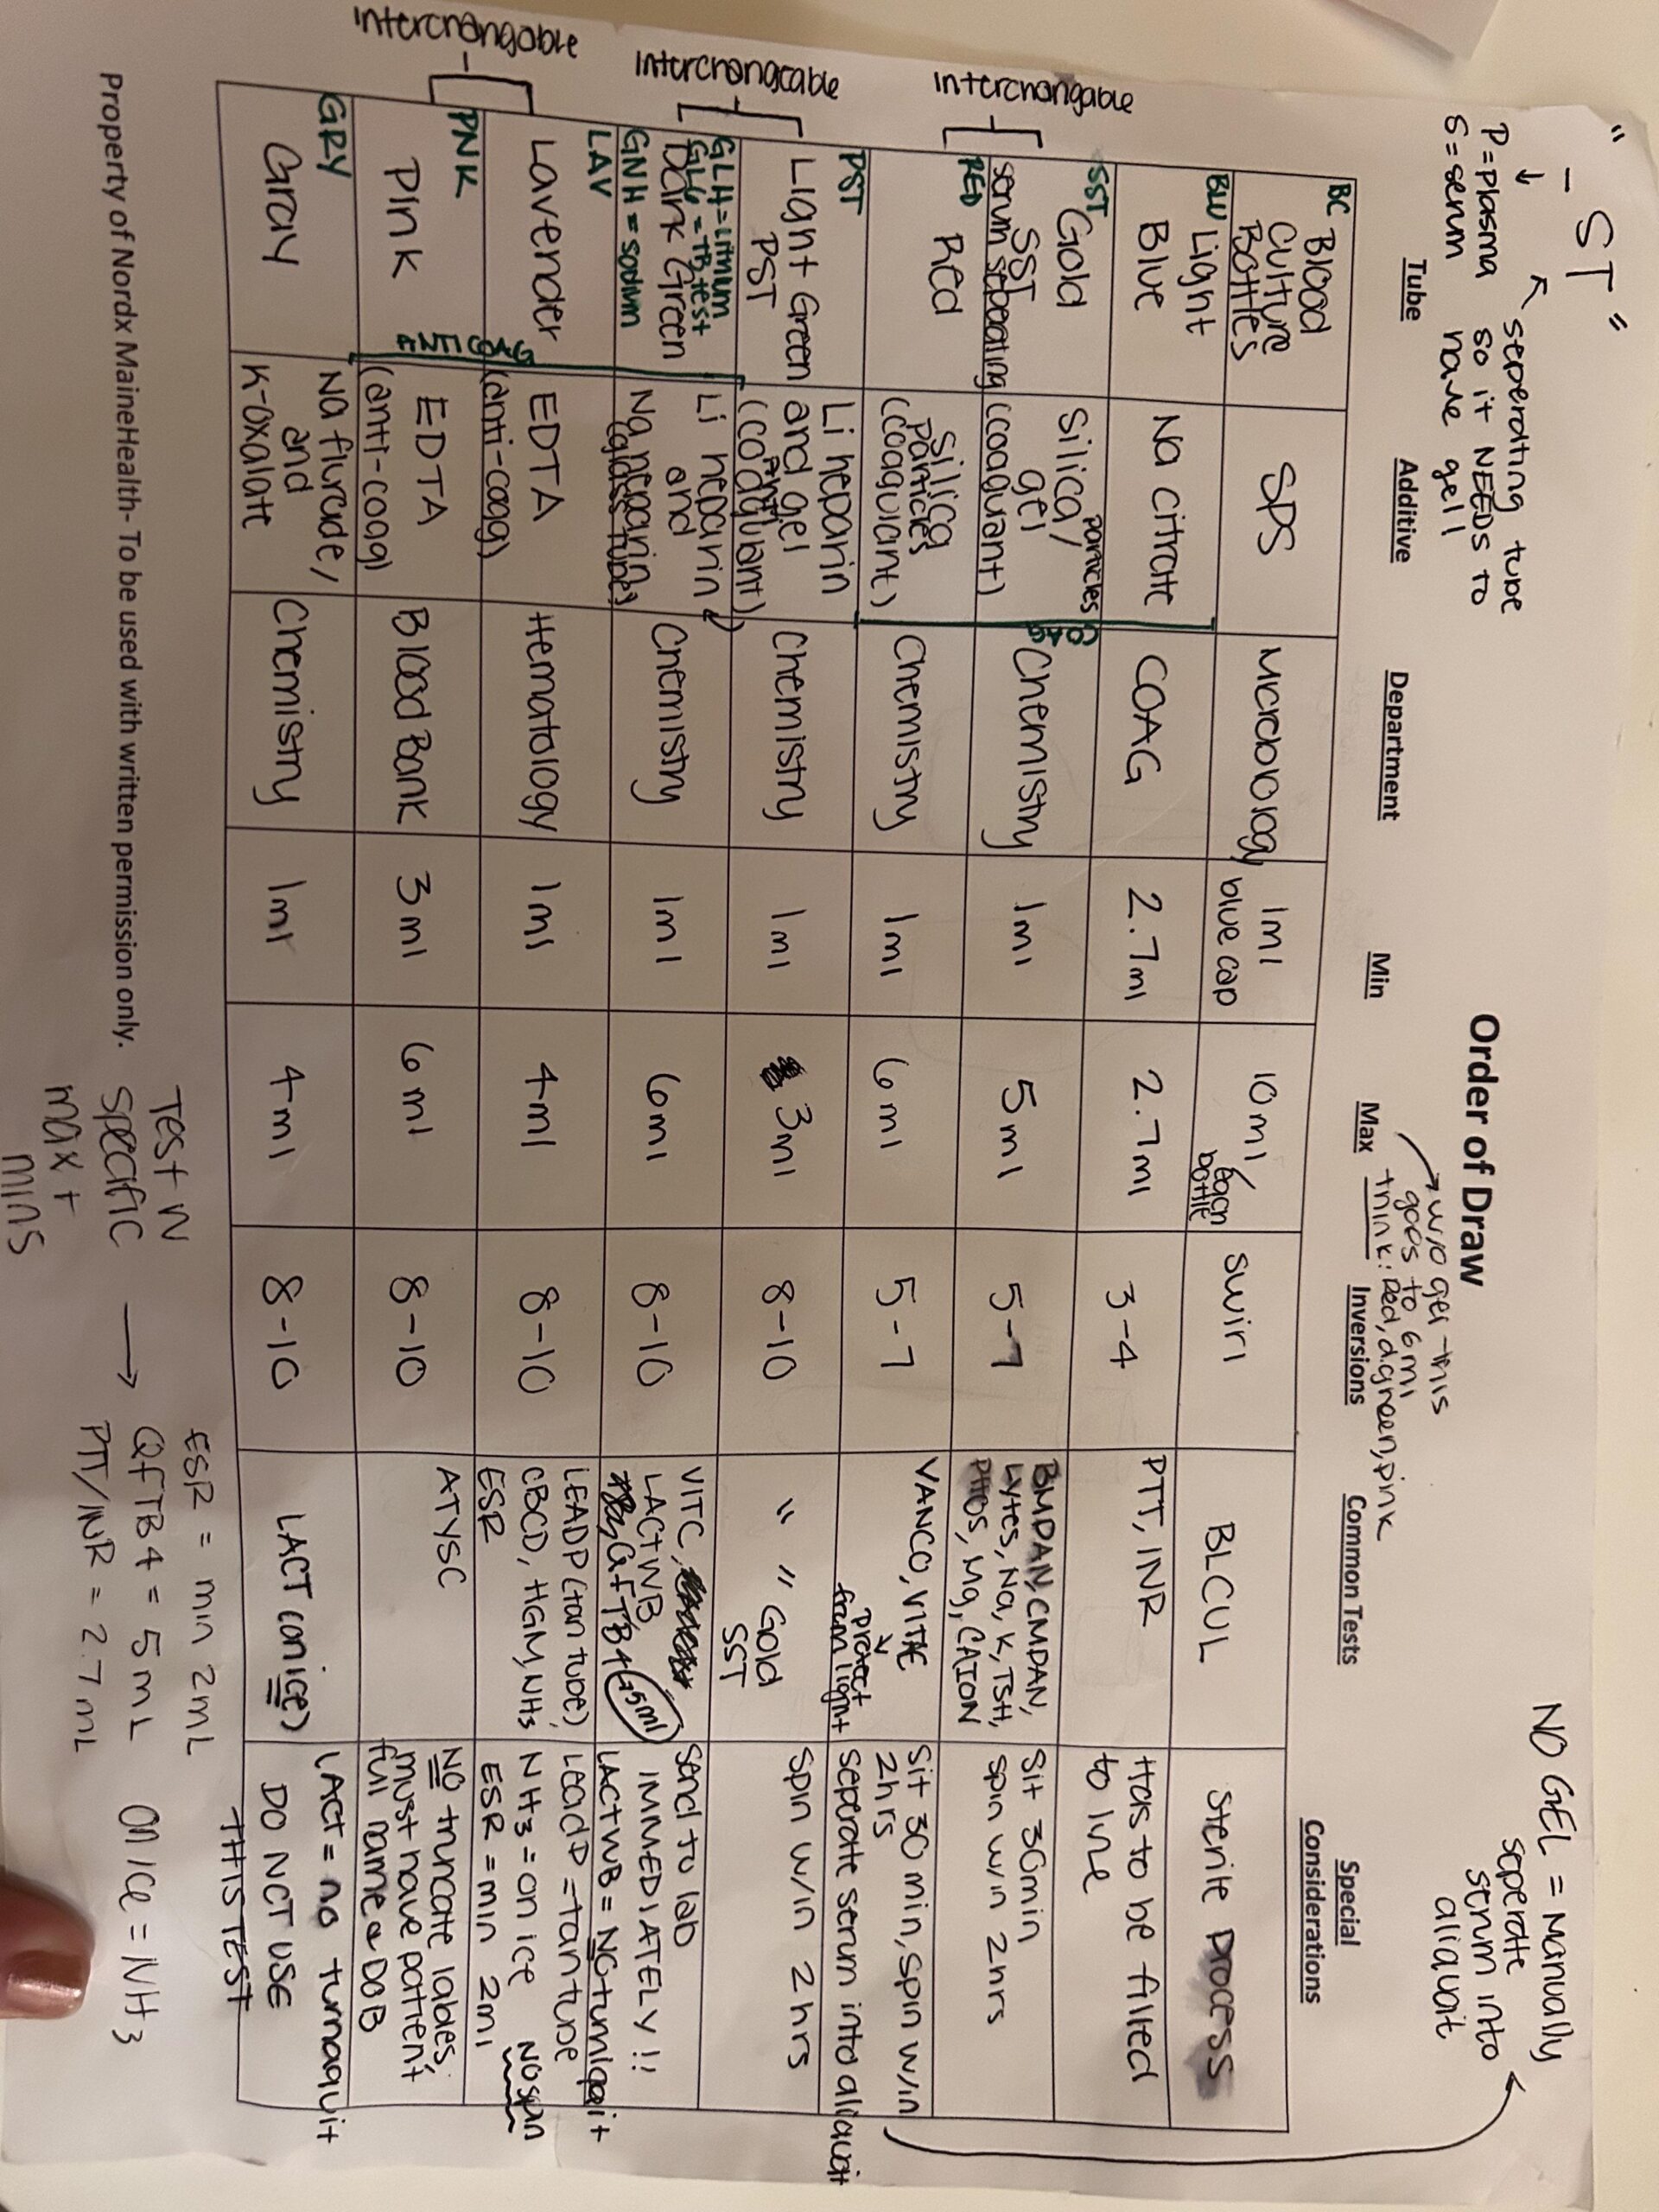 " - ST "
seperating tube
P = plasma so it NEEDS to
S = serum have gell
Order of Draw
w/o gel this
goes to 6ml
think: Red, d.green, pink
NO GEL = Manually
seperate
serum into
aliquoit
Tube Additive Department Min Max Inversions Common Tests Special Considerations
BC Blood
Culture
Bottles
SPS
Microbiology
1ml
blue cap
10ml/
each
bottle
Swirl
BLCUL
Sterile Process
BLU Light
Blue
Na citrate
COAG
2.7ml
2.7ml
3-4
PTT, INR
Has to be filled
to line
Interchangable
SST Gold
SST
serum seberating
Silica/ particles
gel
(coagulant)
COAG
Chemistry
1ml
5ml
5-7
BMPAN, CMPAN,
Lytes, Na, K, TSH,
PHOS, Mg, CAION
Sit 30min
spin w/in 2hrs
RED
Red
Silica
particles
(coagulant)
Chemistry
1ml
6ml
5-7
VANCO, VITAE
protect
from light
Sit 30 min, spin w/in
2hrs
seperate serum into aliquoit
Interchangeable
PST
Light Green
PST
Li heparin
and gel
(anti coagulant)
Chemistry
1ml
3ml
8-10
" " Gold
SST
Spin w/in 2 hrs
GLH = Lithium
GLG = TB test
Dark Green
GNH = Sodium
Li heparin
and
Na heparin
(glass tube)
Chemistry
1ml
6ml
8-10
VITC,
LACTWB,
QFTB4 → 5ml
Send to lab
IMMEDIATELY !!
LACTWB = NO turniqoit
Interchangable
LAV
Lavender
ANTICOAG
EDTA
(anti-coag)
Hematology
1ml
4ml
8-10
LEADP (tan tube),
CBCD, HGM, NH3
ESR
Lead P = tan tube
NH3 = on ice NO spin
ESR = min 2ml
PNK
Pink
EDTA
(anti-coag)
Blood Bank
3ml
6ml
8-10
ATYSC
NO truncate lables,
must have patient's
full name & DOB
GRY
Gray
Na fluroide,
and
K-oxalate
Chemistry
1ml
4ml
8-10
LACT (on ice)
LACT = no turnaquit
DO NOT USE
THIS TEST
Property of Nordx MaineHealth- To be used with written permission only.
Test w
specific →
max +
mins
ESR = min 2mL
QFTB4 = 5mL
PTT/INR = 2.7mL
on ice = NH3